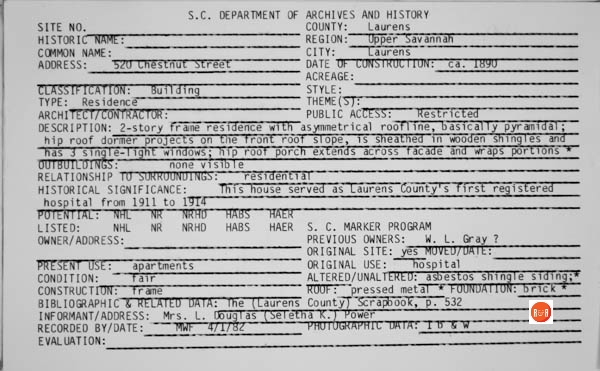 S.C. DEPARTMENT OF ARCHIVES AND HISTORY
SITE NO. COUNTY: Laurens
HISTORIC NAME: REGION: Upper Savannah
COMMON NAME: CITY: Laurens
ADDRESS: 520 Chestnut Street DATE OF CONSTRUCTION: ca. 1890
ACREAGE:
CLASSIFICATION: Building STYLE:
TYPE: Residence THEME(S):
ARCHITECT/CONTRACTOR: PUBLIC ACCESS: Restricted
DESCRIPTION: 2-story frame residence with asymmetrical roofline, basically pyramidal;
hip roof dormer projects on the front roof slope, is sheathed in wooden shingles and
has 3 single-light windows; hip roof porch extends across facade and wraps portions *
OUTBUILDINGS: none visible
RELATIONSHIP TO SURROUNDINGS: residential
HISTORICAL SIGNIFICANCE: This house served as Laurens County's first registered
hospital from 1911 to 1914
POTENTIAL: NHL NR NRHD HABS HAER
LISTED: NHL NR NRHD HABS HAER S. C. MARKER PROGRAM
OWNER/ADDRESS: PREVIOUS OWNERS: W. L. Gray ?
ORIGINAL SITE: yes MOVED/DATE:
PRESENT USE: apartments ORIGINAL USE: hospital
CONDITION: fair ALTERED/UNALTERED: asbestos shingle siding;*
CONSTRUCTION: frame ROOF: pressed metal * FOUNDATION: brick *
BIBLIOGRAPHIC & RELATED DATA: The (Laurens County) Scrapbook, p. 532
INFORMANT/ADDRESS: Mrs. L. Douglas (Seletha K.) Power
RECORDED BY/DATE: MWF 4/1/82 PHOTOGRAPHIC DATA: 1 b & w
EVALUATION:
R&R